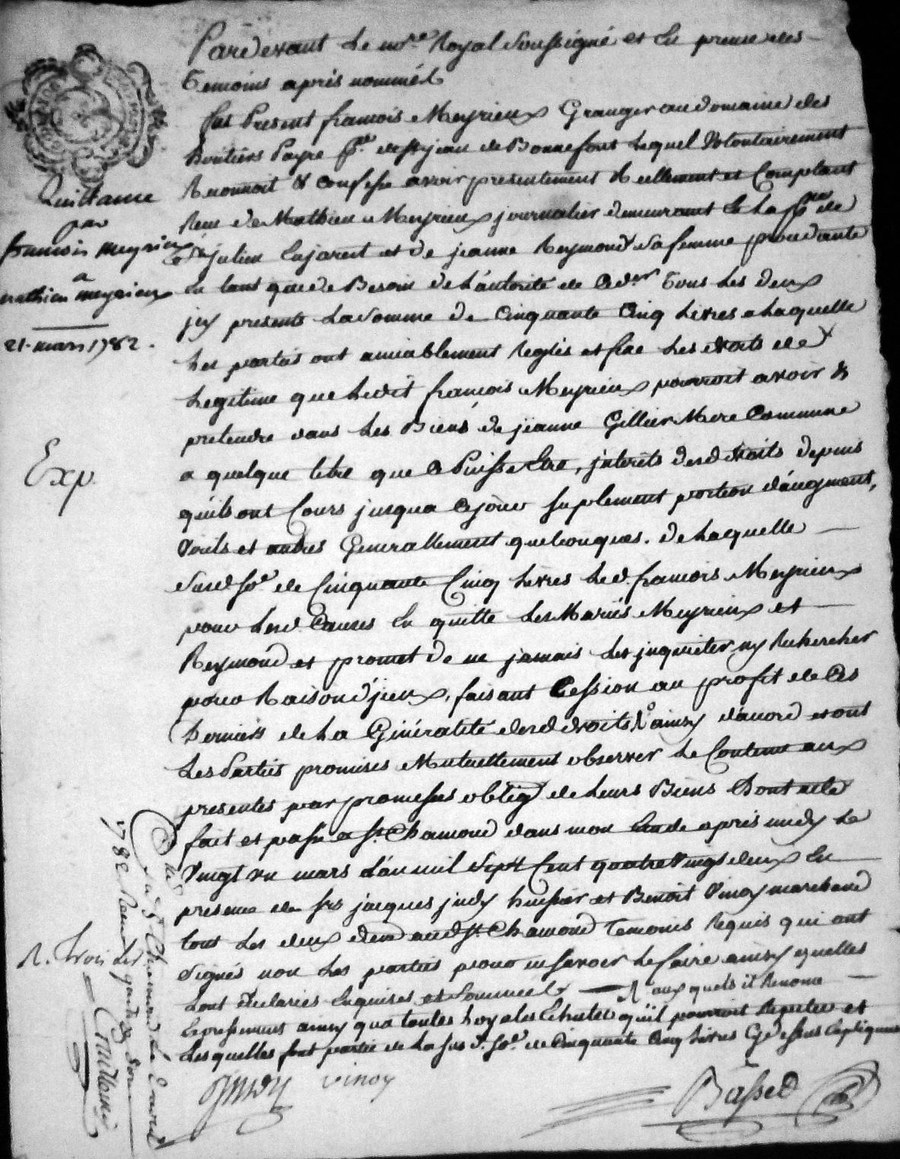 Pardevant Le nre Royal Soussigné et En presence des
temoins après nommés
fut Present francois Meyrieux Granger au domaine des
heritiers Payre psse de St jean de Bonnefont Lequel Volontairement
Reconnoit & confesse avoir presentement Reellement et Comptant
Receu de Mathieu Meyrieux journalier demeurant Lad psse de
St julien Enjarest et de jeanne Reymond Sa femme procedante
En tant que de Besoin de L'autorité de Tous Les deux
jcy presents La Somme de Cinquante Cinq Livres a Laquelle
Les parties ont amiablement Reglés et fixé Les droits de
Legitime que Ledit francois Meyrieux pourroit avoir &
pretendre dans Les Biens de jeanne Gillier Mere Commune
a quelque titre que ce Puisse Etre, jnterets desd droits depuis
qu'ils ont Cours jusqua cejour Suplement portion d'augment,
et autres Generallement quelconques. de Laquelle
Susd So.e de Cinquante Cinq Livres Led. francois Meyrieux
pour Lesd Causes En quitte Les Mariés Meyrieux et
Reymond et promet de ne jamais Les jnquieter ny Rechercher
pour Raison d'jceux, faisant Cession au profit de Ces
Derniers de La Généralité desd droits & ainsy d'acord et ont
Les Parties promises Mutuellement observer Le Contenu aux
presentes par promesses obligõn de Leurs Biens Dont acte
fait et passé a St. Chamond dans mon Etude après midy Le
Vingt un mars L'an mil Sept Cent quatre Vingt deux En
presence de Srs jacques judy huissier et Benoit Vinoy marchand
tout Les deux dem aud St. Chamond Temoins Requis qui ont
Signés non Les parties pour ne Savoir Le faire ainsy quelles
L'ont declarées Enquises et Sommeés — R aux quels il Renonce
Expressement ainsy qua toutes Loyales Echutes qu'il pourroit Repeter et
Lesquelles font partie de La Sus d. So.e de Cinquante Cinq Livres Cy dessus Expliquée
Vinoy
Basset
Quittance
par
francois meyrieux
a
mathieu meyrieux
21. mars 1782.
Exp.
R. trois Les
Clle a St Chamond Le
1782 Recu